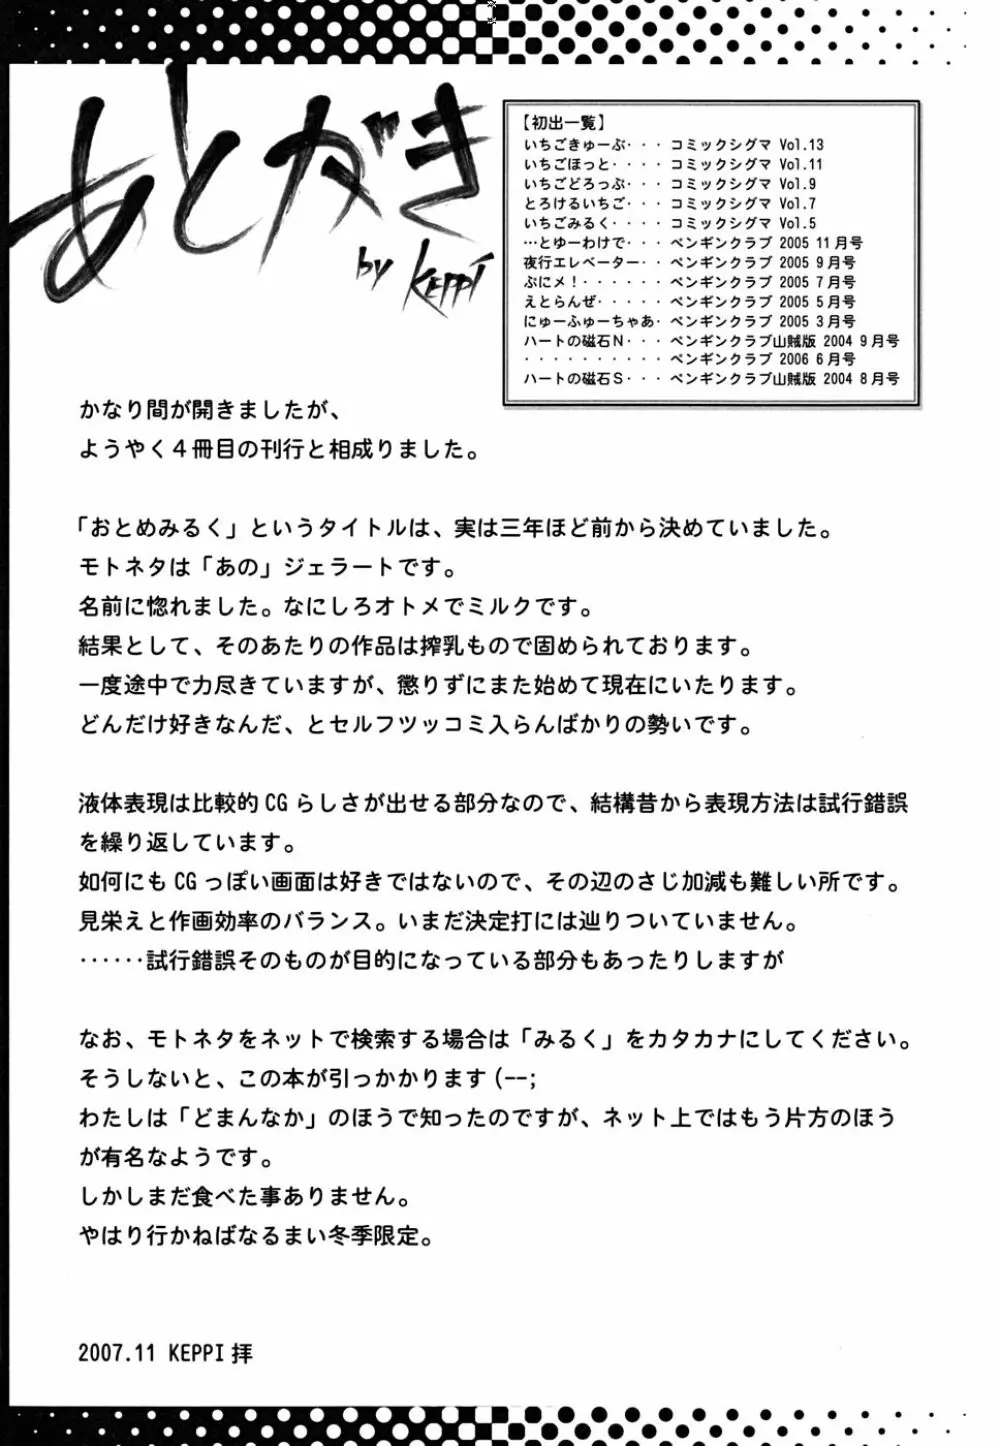 あとがき
by KEPPI
【初出一覧】
いちごきゅーぶ・・・ コミックシグマ Vol.13
いちごほっと・・・・ コミックシグマ Vol.11
いちごどろっぷ・・・ コミックシグマ Vol.9
とろけるいちご・・・ コミックシグマ Vol.7
いちごみるく・・・・ コミックシグマ Vol.5
…とゆーわけで・・・ ペンギンクラブ 2005 11月号
夜行エレベーター・・ ペンギンクラブ 2005 9月号
ぷにメ！・・・・・・ ペンギンクラブ 2005 7月号
えとらんぜ・・・・・ ペンギンクラブ 2005 5月号
にゅーふゅーちゃあ・ ペンギンクラブ 2005 3月号
ハートの磁石Ｎ・・・ ペンギンクラブ山賊版 2004 9月号
・・・・・・・・・・ ペンギンクラブ 2006 6月号
ハートの磁石Ｓ・・・ ペンギンクラブ山賊版 2004 8月号
かなり間が開きましたが、
ようやく４冊目の刊行と相成りました。
「おとめみるく」というタイトルは、実は三年ほど前から決めていました。
モトネタは「あの」ジェラートです。
名前に惚れました。なにしろオトメでミルクです。
結果として、そのあたりの作品は搾乳もので固められております。
一度途中で力尽きていますが、懲りずにまた始めて現在にいたります。
どんだけ好きなんだ、とセルフツッコミ入らんばかりの勢いです。
液体表現は比較的 CG らしさが出せる部分なので、結構昔から表現方法は試行錯誤
を繰り返しています。
如何にも CG っぽい画面は好きではないので、その辺のさじ加減も難しい所です。
見栄えと作画効率のバランス。いまだ決定打には辿りついていません。
‥‥‥試行錯誤そのものが目的になっている部分もあったりしますが
なお、モトネタをネットで検索する場合は「みるく」をカタカナにしてください。
そうしないと、この本が引っかかります(--;
わたしは「どまんなか」のほうで知ったのですが、ネット上ではもう片方のほう
が有名なようです。
しかしまだ食べた事ありません。
やはり行かねばなるまい冬季限定。
2007.11 KEPPI 拝